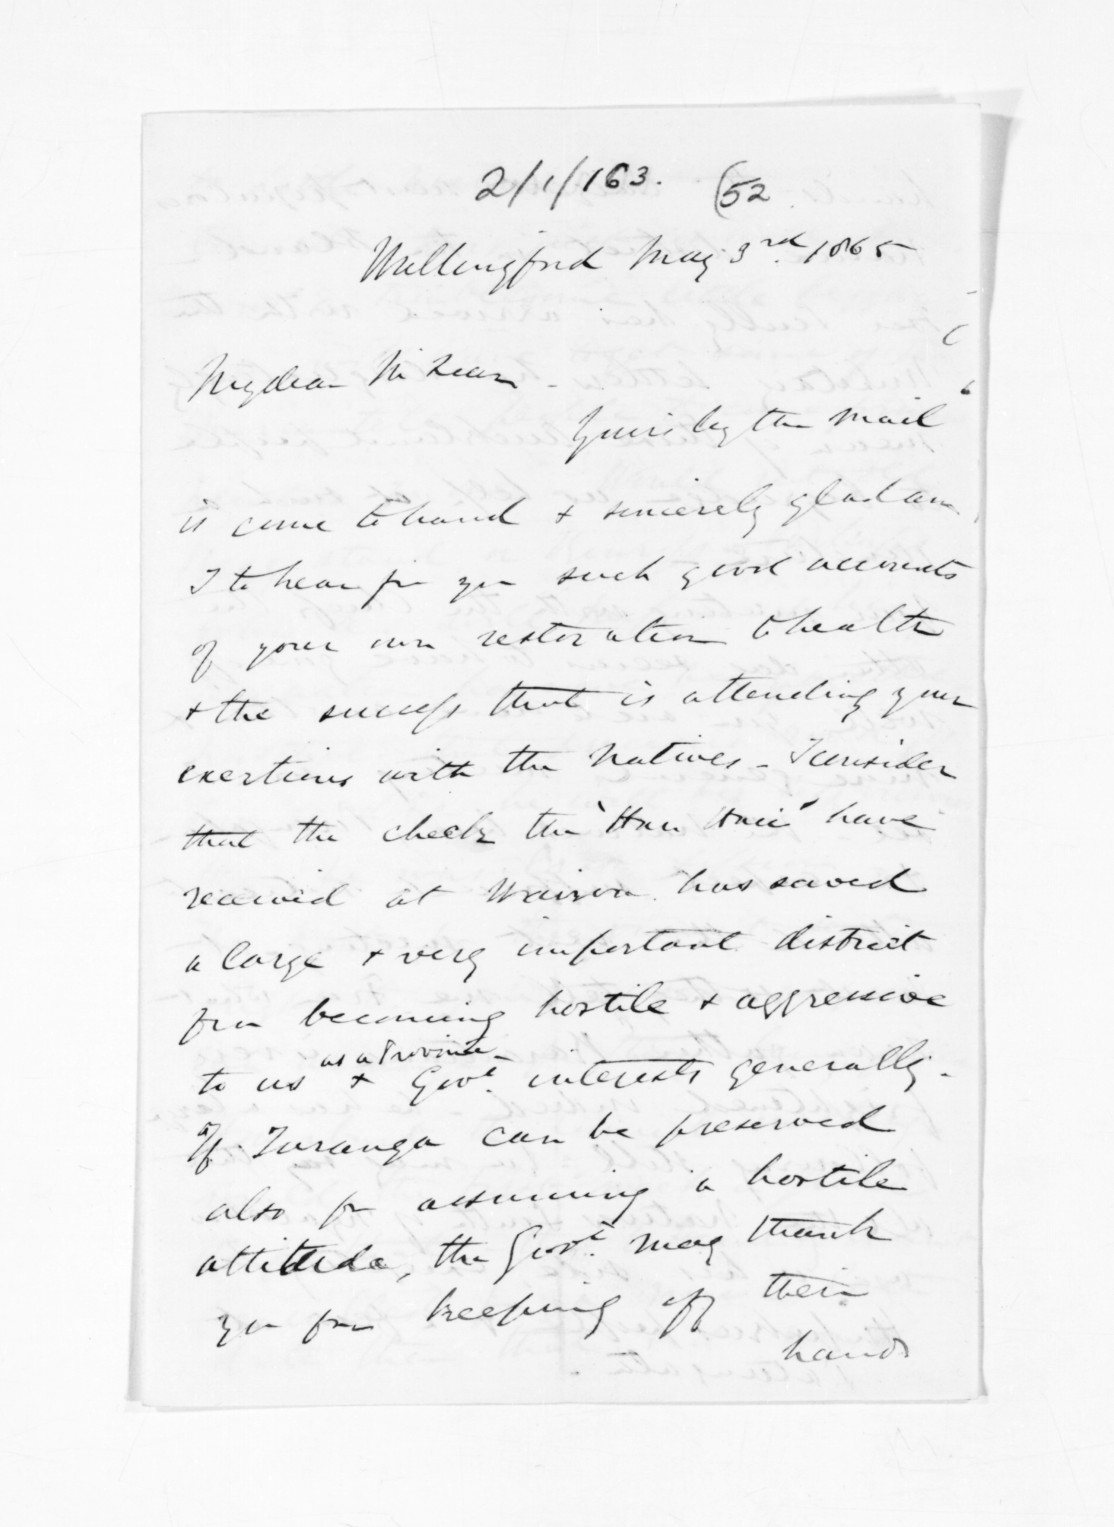 2/1/163. (52
Wallingford May 3rd. 1865
My dear McLean -
Yours by the Mail
is come to hand & sincerely glad am
I to hear fm you such good accounts
of your own restoration to health
& the success that is attending your
exertions with the Natives - I consider
that the check the "Hau Hau" have
received at Wairoa has saved
a large & very important district
from becoming hostile & aggressive
as a Province -
to us & Govt. interests generally -
If Turanga can be preserved
also fm assuming a hostile
attitude, the Govt. may thank
you for keeping off their
hands